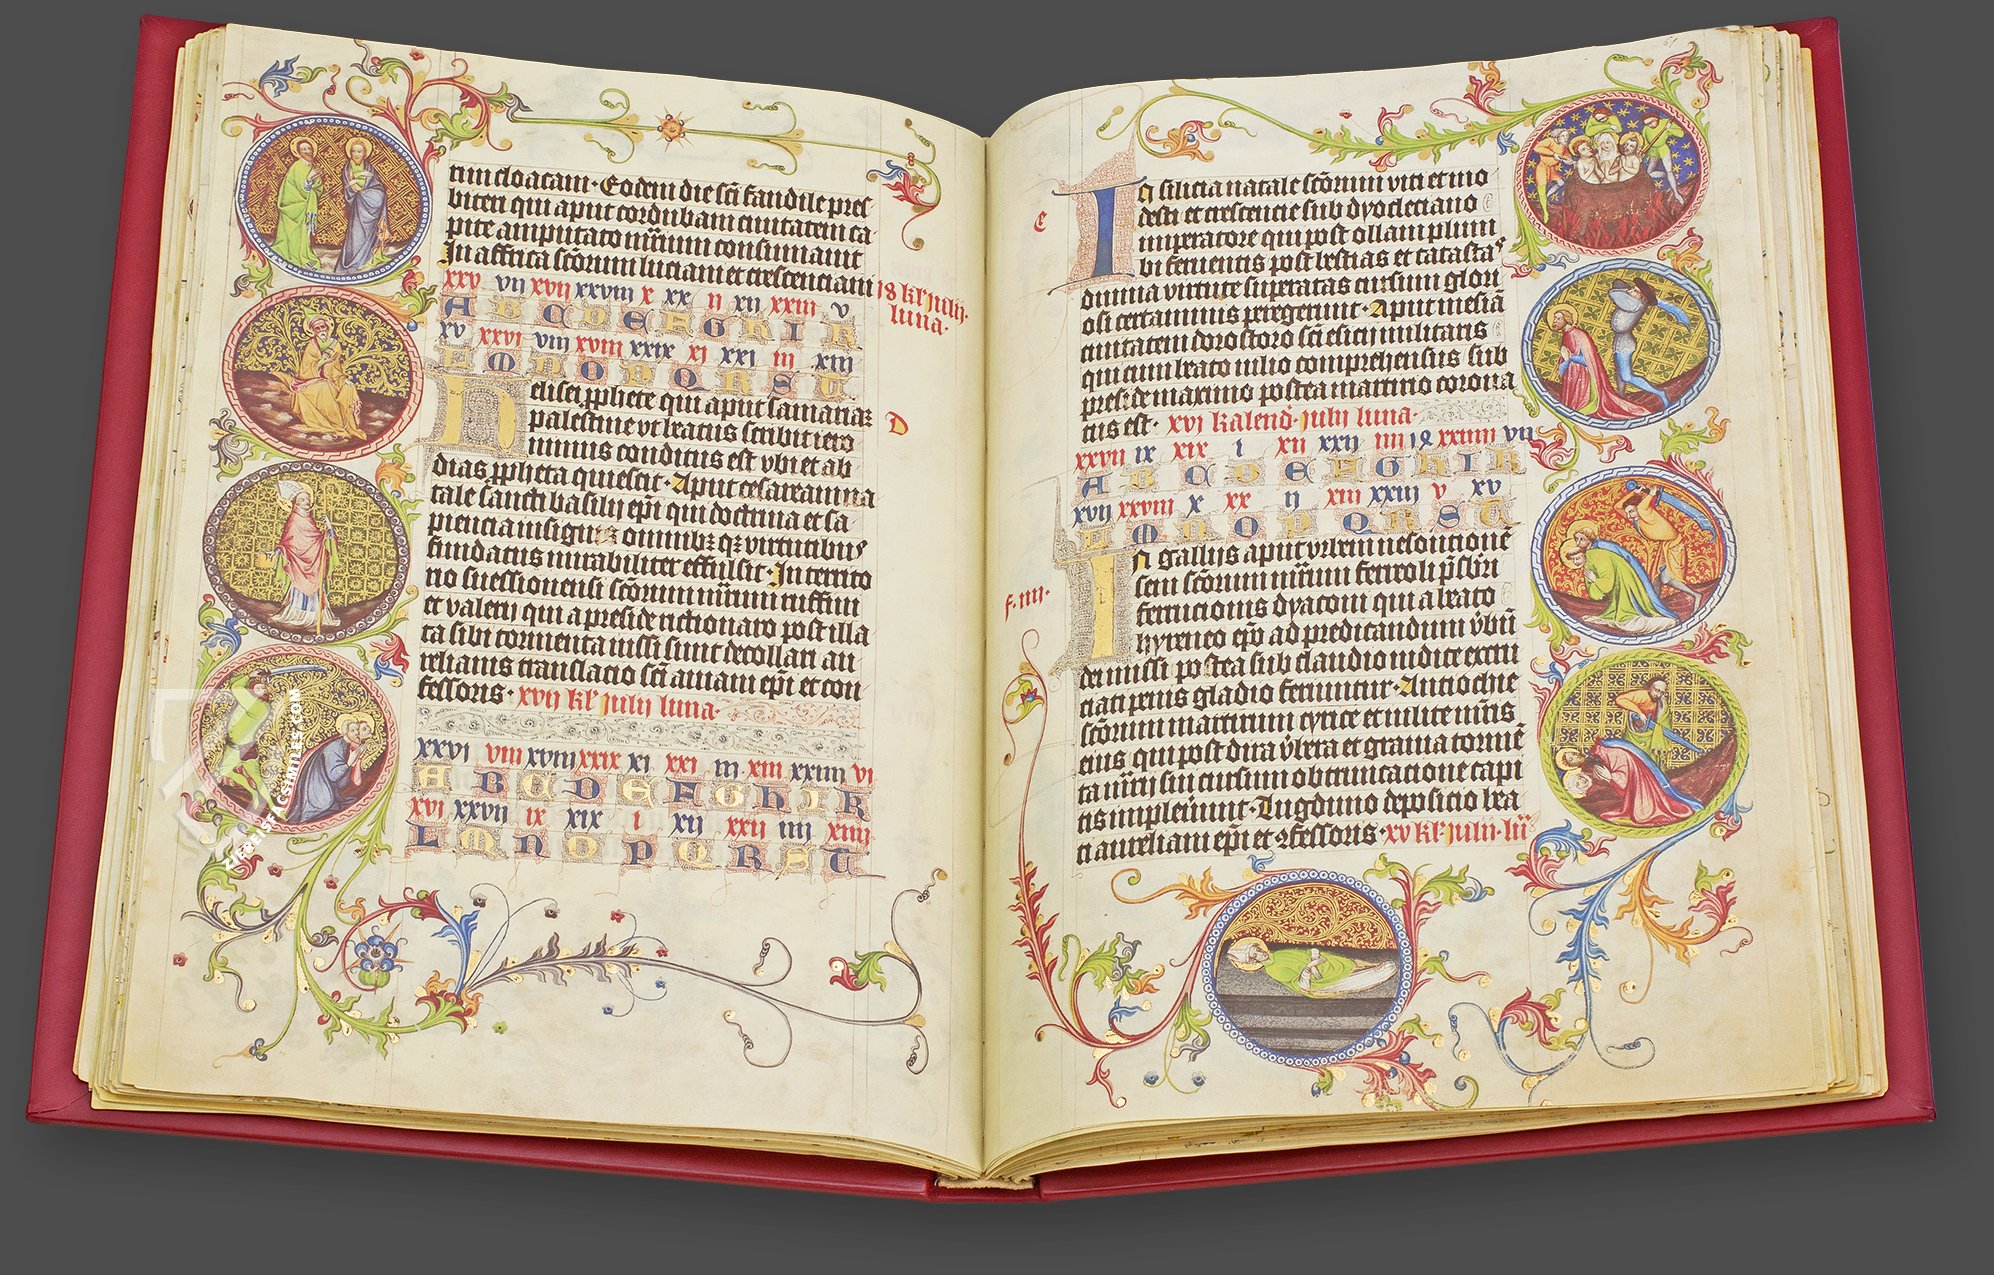 tim cloacam · Eodem die scī fandile pres
biteri qui aput cordubam ciuitatem ca
pite amputato mr̄ium consumauit
In affrica scōrum luciani et crescenciani
18 kl' Julij
luna ·
xxv vii xvii xxviii x xx ii xii xxiii v
A B C D E F G H I K
xv xxvi viii xviii xxix xi xxi iii xiii
L M N O P Q R S T
D
Helisei pphete qui aput samariaz
palestine vt beatus scribit iero
nimus conditus est vbi et ab
dias ppheta quiescit · Aput cesaream na
tale sancti basilij epī qui doctrina et sa
piencia insignis omnibz qz virtutibus
fundatus mirabiliter effulsit · In territo
rio suessionensi scōrum mr̄rum ruffini
et valerij qui a preside rictionaro post illa
ta sibi tormenta iussi sunt decollari au
relianis translacio scī auiani epī et con
fessoris · xvii kl' Julij luna ·
xxvi viii xviii xxix xi xxi iii xiii xxiiii vi
A B C D E F G H I K
xvi xxvii ix xix i xii xxii iiii xiiii
L M N O P Q R S T
ZIEREISFACSIMILES.COM
61
e
In silicia natale scōrum viti et mo
desti et crescencie sub dyocleciano
imperatore qui post ollam plum
bi feruentis post bestias et catastas
diuina virtute superatas cursum glori
osi certaminis peregerunt · Aput mesia
ciuitatem dorostoro scī esicij militaris
qui cum beato iulio comprehensus sub
preside maximo postea martirio corona
tus est · xvi kalend' Julij luna ·
xxvii ix xix i xii xxii iiii 18 xxiiii vii
A B C D E F G H I K
xvii xxviii x xx ii xiii xxiii v xv
L M N O P Q R S T
f · iiii ·
In gallijs aput vrbem uesoncione
sem scōrum mr̄rum ferreoli psbri
ferrucionis dyaconi qui a beato
hyreneo epō ad predicandum vbū
dei missi postea sub claudio iudice extm
ciati penis gladio feriuntur · Antiochie
scōrum martirum cyrice et iulite mr̄is
eius qui post dira vbera et grauia tormē
ta mr̄rij sui cursum obtruncacione capi
tis impleuerunt · Lugduno deposicio bea
ti aureliani epī et 9fessoris · xv kl' Julij · lū